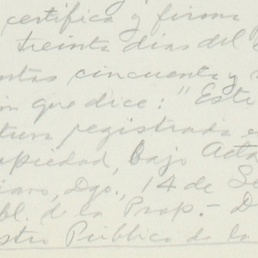 certifica y firma
treinta días del
cincuenta y
que dice: "Este
registrada e
opiedad, bajo Acta
Dgo., 14 de Se
bl. de la Prop.- D
stro Público de la